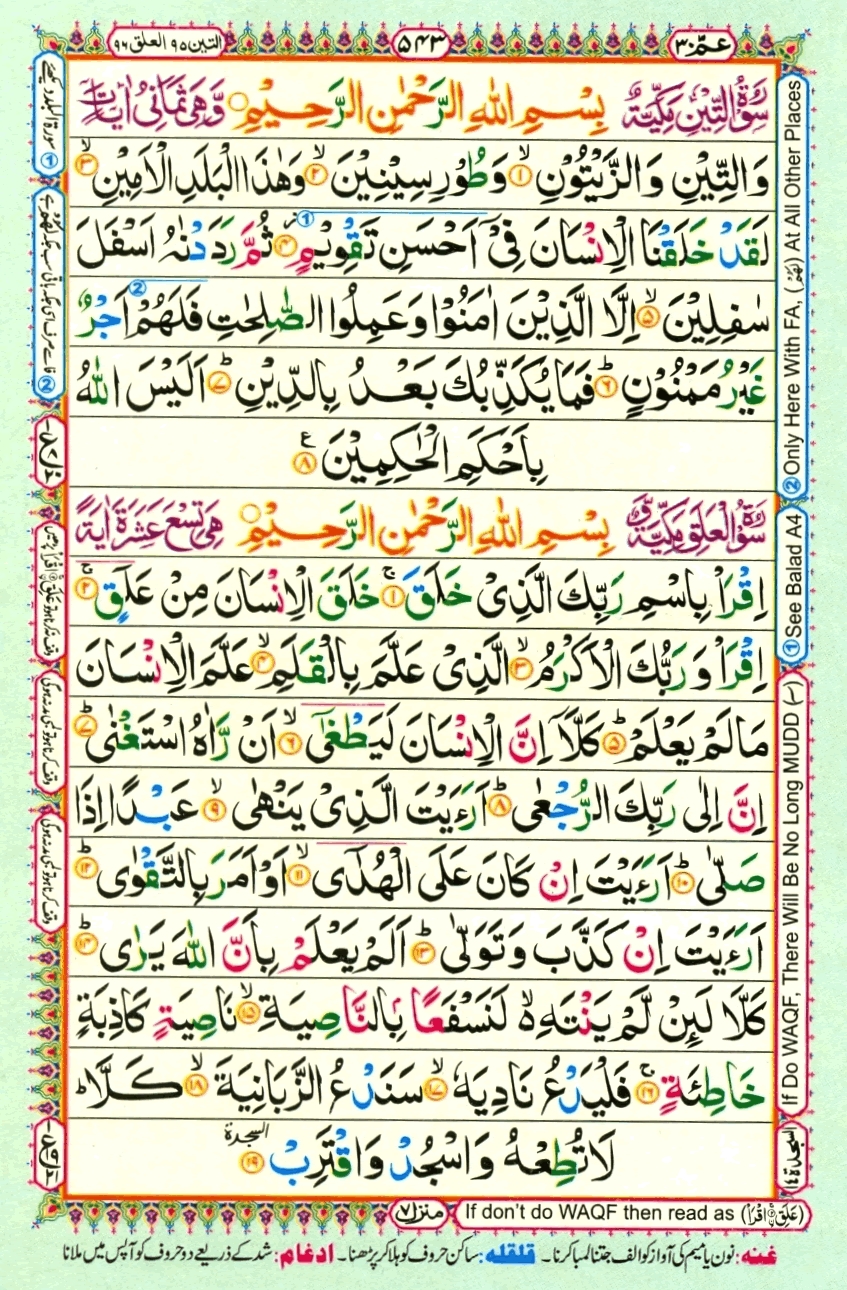 عـمّ ٣٠
٥٤٣
التين ٩٥ العلق ٩٦
سُوْرَةُ التِّيْنِ مَكِّيَّةٌ بِسْمِ اللهِ الرَّحْمٰنِ الرَّحِيْمِ وَّهِيَ ثَمَانِيْ اٰيَاتٍ
وَالتِّيْنِ وَالزَّيْتُوْنِ ۙ‏﴿۱﴾ وَطُوْرِ سِيْنِيْنَ ۙ‏﴿۲﴾ وَهٰذَا الْبَلَدِ الْاَمِيْنِ ۙ‏﴿۳﴾
لَقَدْ خَلَقْنَا الْاِنْسَانَ فِيْٓ اَحْسَنِ تَقْوِيْمٍ ۫‏﴿۴﴾ ثُمَّ رَدَدْنٰهُ اَسْفَلَ
سٰفِلِيْنَ ۙ‏﴿۵﴾ اِلَّا الَّذِيْنَ اٰمَنُوْا وَعَمِلُوا الصّٰلِحٰتِ فَلَهُمْ اَجْرٌ
غَيْرُ مَمْنُوْنٍ ؕ‏﴿۶﴾ فَمَا يُكَذِّبُكَ بَعْدُ بِالدِّيْنِ ؕ‏﴿۷﴾ اَلَيْسَ اللهُ
بِاَحْكَمِ الْحٰكِمِيْنَ ﴿۸﴾ ع
سُوْرَةُ الْعَلَقِ مَكِّيَّةٌ وَّ بِسْمِ اللهِ الرَّحْمٰنِ الرَّحِيْمِ هِيَ تِسْعَ عَشَرَةَ اٰيَةً
اِقْرَاْ بِاسْمِ رَبِّكَ الَّذِيْ خَلَقَ ۚ‏﴿۱﴾ خَلَقَ الْاِنْسَانَ مِنْ عَلَقٍ ۚ‏﴿۲﴾
اِقْرَاْ وَرَبُّكَ الْاَكْرَمُ ۙ‏﴿۳﴾ الَّذِيْ عَلَّمَ بِالْقَلَمِ ۙ‏﴿۴﴾ عَلَّمَ الْاِنْسَانَ
مَا لَمْ يَعْلَمْ ؕ‏﴿۵﴾ كَلَّاۤ اِنَّ الْاِنْسَانَ لَيَطْغٰٓى ۙ‏﴿۶﴾ اَنْ رَّاٰهُ اسْتَغْنٰى ؕ‏﴿۷﴾
اِنَّ اِلٰى رَبِّكَ الرُّجْعٰى ؕ‏﴿۸﴾ اَرَءَيْتَ الَّذِيْ يَنْهٰى ۙ‏﴿۹﴾ عَبْدًا اِذَا
صَلّٰى ؕ‏﴿۱۰﴾ اَرَءَيْتَ اِنْ كَانَ عَلَى الْهُدٰٓى ۙ‏﴿۱۱﴾ اَوْ اَمَرَ بِالتَّقْوٰى ؕ‏﴿۱۲﴾
اَرَءَيْتَ اِنْ كَذَّبَ وَتَوَلّٰى ؕ‏﴿۱۳﴾ اَلَمْ يَعْلَمْ بِاَنَّ اللهَ يَرٰى ؕ‏﴿۱۴﴾
كَلَّا لَىِٕنْ لَّمْ يَنْتَهِ ۙ لَنَسْفَعًۢا بِالنَّاصِيَةِ ۙ‏﴿۱۵﴾ نَاصِيَةٍ كَاذِبَةٍ
خَاطِئَةٍ ۚ‏﴿۱۶﴾ فَلْيَدْعُ نَادِيَهٗ ۙ‏﴿۱۷﴾ سَنَدْعُ الزَّبَانِيَةَ ۙ‏﴿۱۸﴾ كَلَّا ؕ
لَا تُطِعْهُ وَاسْجُدْ وَاقْتَرِبْ ﴿۱۹﴾ السجدة
② Only Here With FA, (لَهُمْ) At All Other Places
① See Balad A4
If Do WAQF, There Will Be No Long MUDD (~)
السجدة ١٤
① سورۃ البلد دیکھئے
وقف کرنا ہو تو لمبی مد نہ ہوگی
وقف کرنا ہو تو لمبی مد نہ ہوگی
منزل ٧
If don't do WAQF then read as (عَلَقِ نِ اقْرَاْ)
غنہ: نون یا میم کی آواز کو الف جتنا لمبا کرنا۔ قلقلہ: ساکن حروف کو ہلا کر پڑھنا۔ ادغام: شد کے ذریعے دو حروف کو آپس میں ملانا